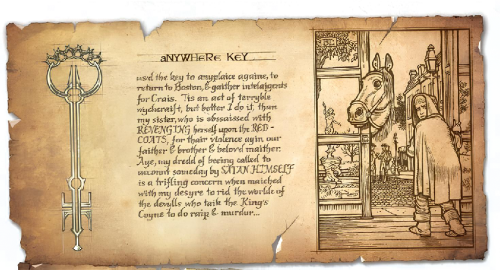 aNYWHeRe KeY
used the key to anyplaice againe, to
return to Boston, & gaither intelaigents
for Crais. 'Tis an act of terryble
wychcraift, but better I do it, than
my sister, who is obssaissed with
REVENGING herself upon the RED-
COATS, for thair violence agin our
faither & brother & belov'd maither.
Aye, my dredd of being called to
account someday by SATAN HIMSELF
is a trifling concern when matched
with my desyre to rid the worlde of
the devylls who taik the King's
Coyne to do raip & murdur...